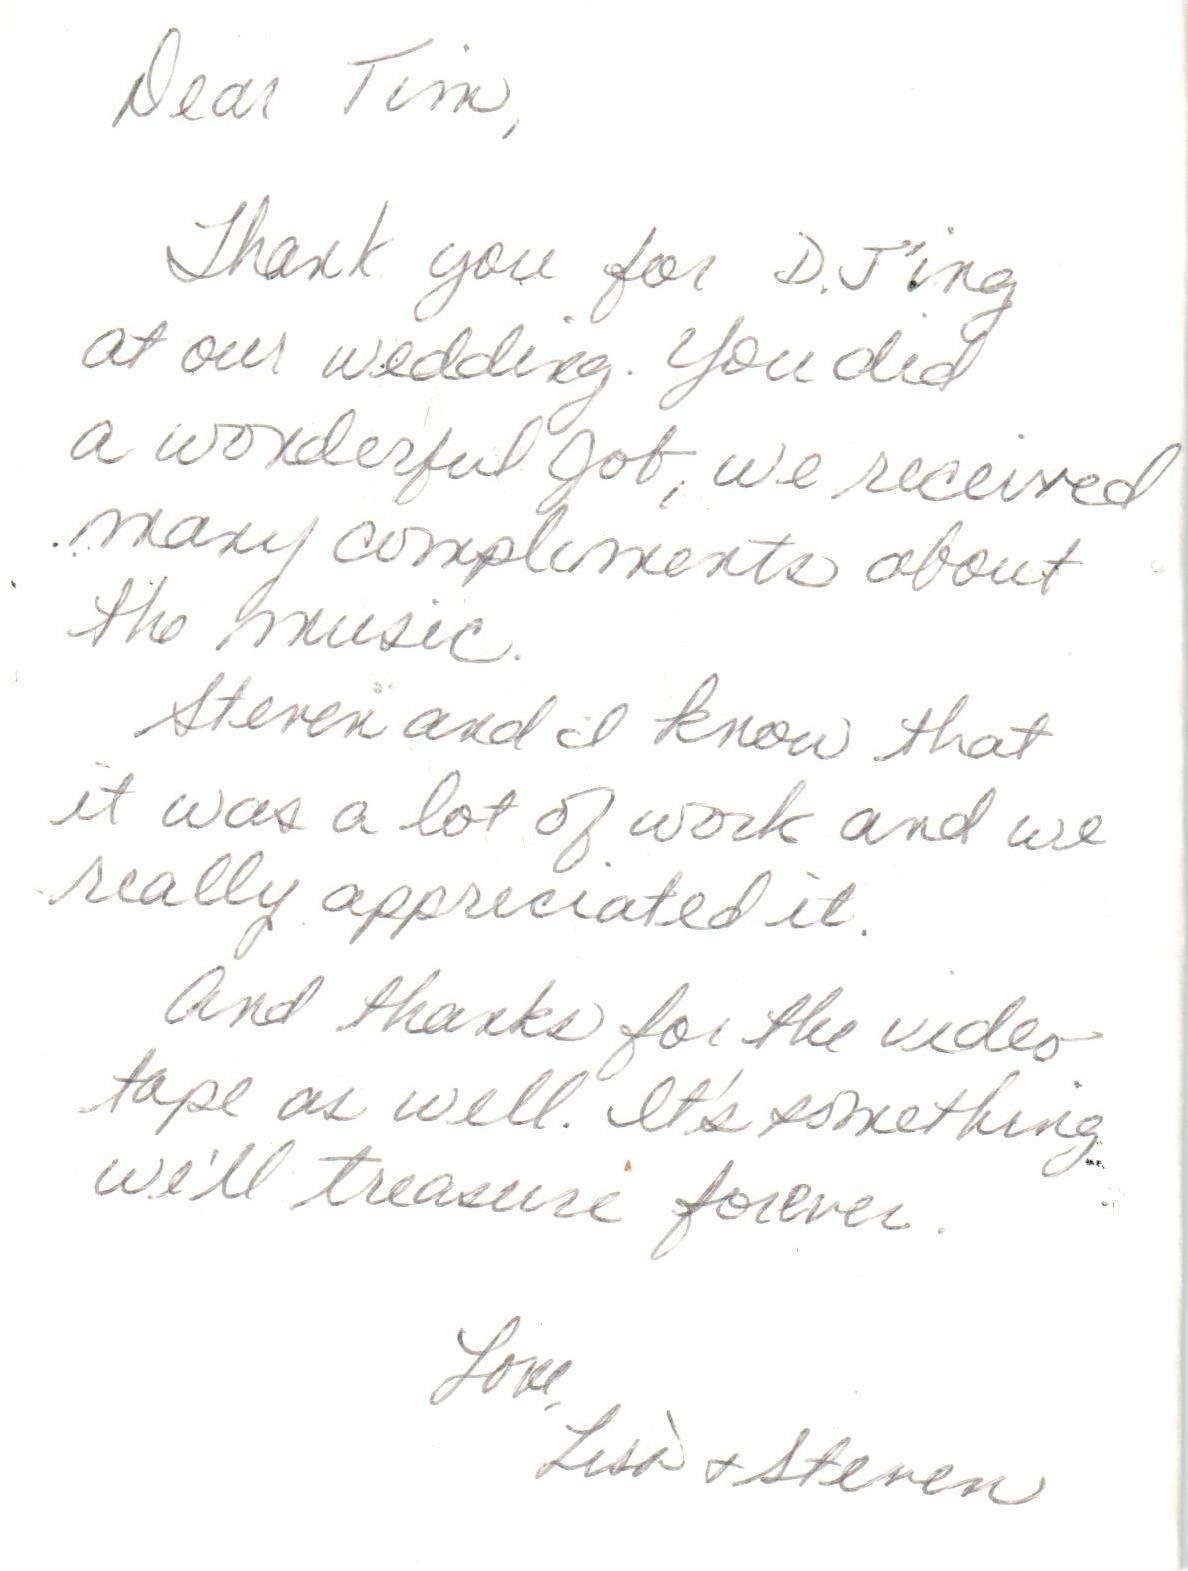 Dear Tim,
Thank you for D.J'ing
at our wedding. You did
a wonderful job, we received
many compliments about
the music.
Steven and I know that
it was a lot of work and we
really appreciated it.
And thanks for the video
tape as well. It's something
we'll treasure forever.
Love,
Lisa + Steven